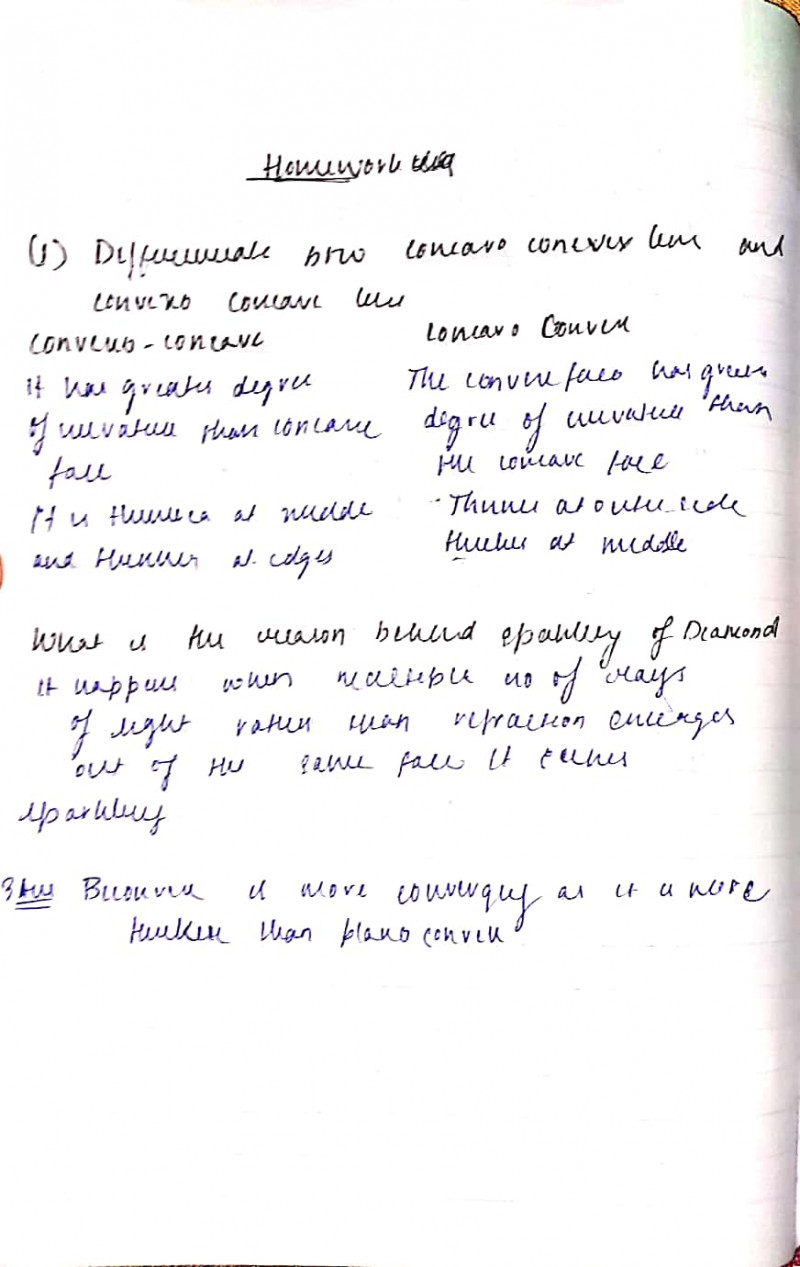 Homework
(1) Differentiate btw concavo convex lens and
convexo concave lens
convexo-concave
concavo Convex
it has greater degree
of curvature than concave
face
It is thicker at middle
and thinner at edges
The convex face has greater
degree of curvature than
the concave face
- Thinner at outer side
thicker at middle
What is the reason behind sparkling of Diamond
it happens when multiple no of rays
of light rather than refraction emerges
out of the same face it causes
sparkling
3 Ans Biconvex is more converging as it is more
thicker than plano convex